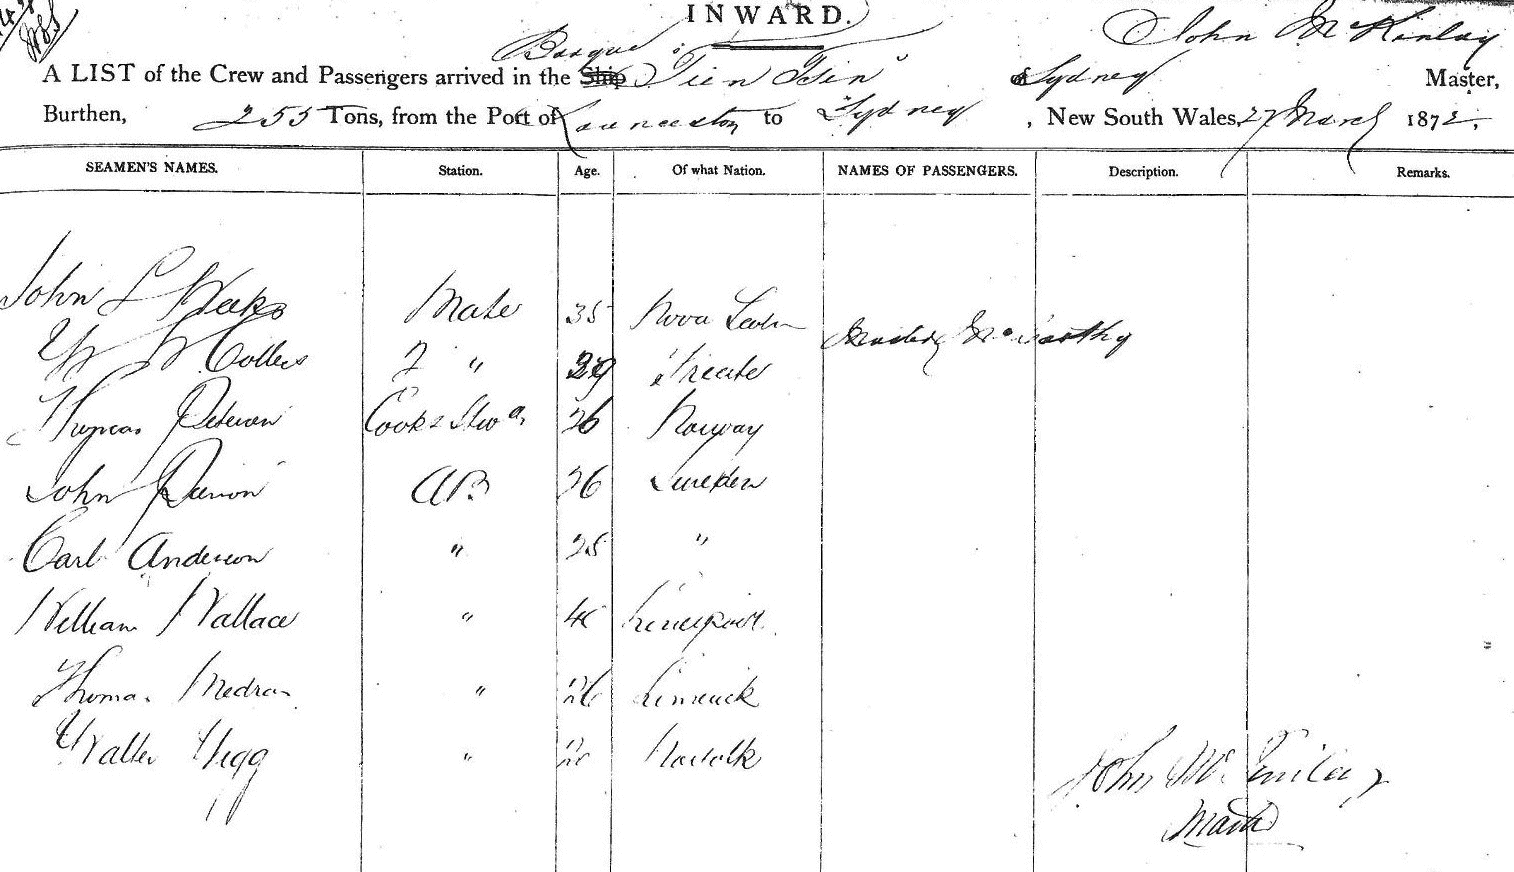 INWARD.
Barque John McKinlay
A LIST of the Crew and Passengers arrived in the Ship "Tien Tsin" of Sydney Master,
Burthen, 255 Tons, from the Port of Launceston to Sydney, New South Wales, 27 March 1872.
SEAMEN'S NAMES. Station. Age. Of what Nation. NAMES OF PASSENGERS. Description. Remarks.
John L Weeks Mate 35 Nova Scotia
McCarthy
W W Collers 2 " 29 Trieste
Thomas Peterson Cook & Stwd 26 Norway
John AB 26 Sweden
Carl Anderson " 25 "
William Wallace " Liverpool
Thomas " 26 Limerick
Walter Hegg " Norfolk
John McKinlay
Master